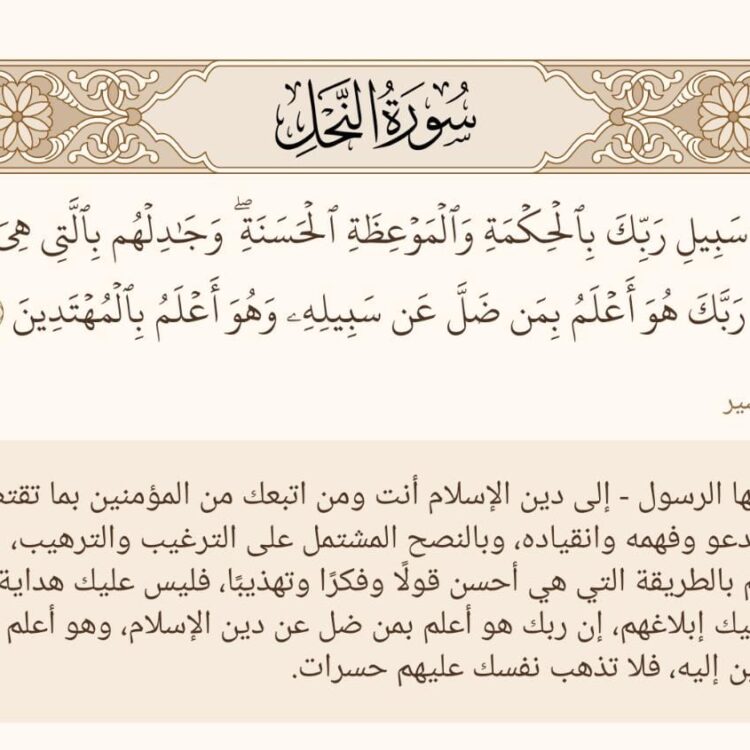 سُورَةُ النَّحْلِ
سَبِيلِ رَبِّكَ بِٱلْحِكْمَةِ وَٱلْمَوْعِظَةِ ٱلْحَسَنَةِۖ وَجَٰدِلْهُم بِٱلَّتِي هِيَ
رَبَّكَ هُوَ أَعْلَمُ بِمَن ضَلَّ عَن سَبِيلِهِۦ وَهُوَ أَعْلَمُ بِٱلْمُهْتَدِينَ
ها الرسول - إلى دين الإسلام أنت ومن اتبعك من المؤمنين بما تقتض
دعو وفهمه وانقياده، وبالنصح المشتمل على الترغيب والترهيب،
م بالطريقة التي هي أحسن قولًا وفكرًا وتهذيبًا، فليس عليك هداية
يك إبلاغهم، إن ربك هو أعلم بمن ضل عن دين الإسلام، وهو أعلم
ين إليه، فلا تذهب نفسك عليهم حسرات.